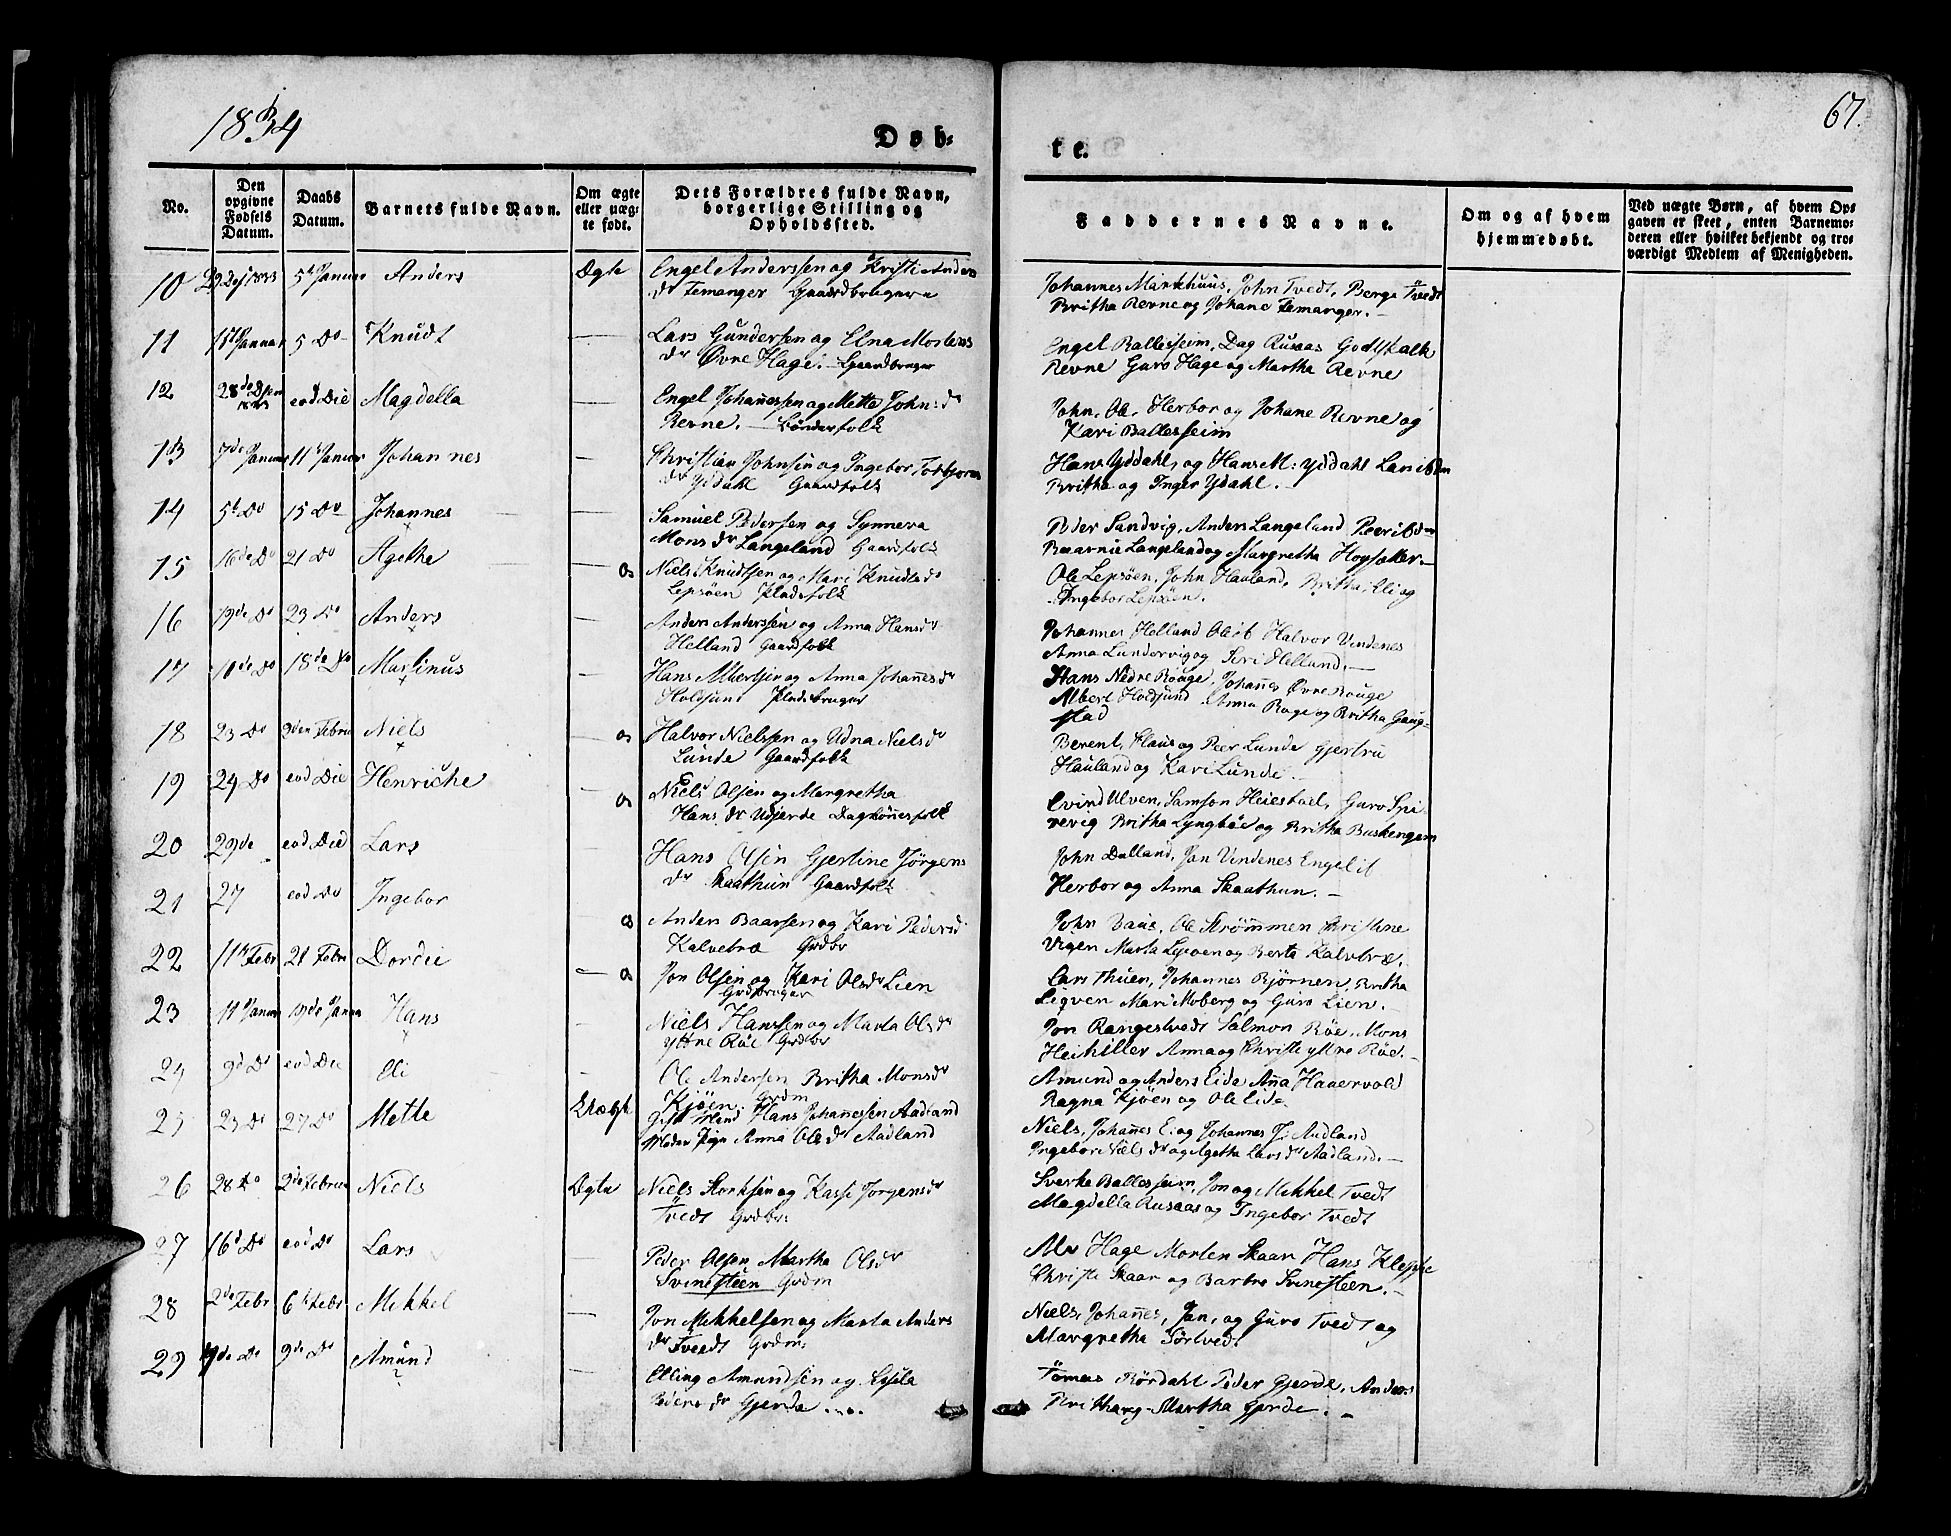 1834
67.
Døb-
te.
No.
Den opgivne Fødsels Datum.
Daabs Datum.
Barnets fulde Navn.
Om ægte eller uægte født.
Dets Forældres fulde Navn, borgerlige Stilling og Opholdssted.
Faddernes Navne.
Om og af hvem hjemmedøbt.
Ved uægte Børn, af hvem Opgaven er skeet, enten Barnemoderen eller hvilket bekjendt og troværdigt Medlem af Menigheden.
10 Anders Ægte Engel Anderssen og Kristi Anders
dr Femanger Gaardbrugere
Johannes Markhuus, John Tvedt, Berge Tvedt
Britha Revne og Johane Femanger.
11 5 Do Knudt Lars Gundersen og Elna Mortens
dr Øvne Hage. Gaardbruger
Engel Ballesheim, Dag Rusaas Godtskalk
Revne Guro Hage og Martha Revne
12 eod Die Magdella Engel Johanessen og Mette John: dr
Revne.
John, Ole, Herbor og Johane Revne og
Kari Ballesheim
13 7de Januar 11t Januar Johannes Christian Johnsen og Ingebor Torbjorns
dr Ydahl Gaardfolk
Hans Yddahl, og Hans M: Yddahl
Britha og Inger Ydahl.
14 5t Do 15 Do Johannes Samuel Pedersen og Synneva
Mons dr Langeland Gaardfolk
Peder Sandvig, Anders Langeland
Langeland og Margretha
15 16de Do 21 Do Agethe Niels Knudtsen og Mari Knudtsdr
Lepsøen Pladsfolk
Ole Lepsøen, John Hauland, Britha, Eli og
Ingebor Lepsøen.
16 19de Do 23 Do Anders Anders Anderssen og Anna Hansdr
Helland Gaardfolk
Johannes Helland Halvor Vindenes
Anna Lundervig og Siri Helland.
17 18de Do Martinus Hans Albertsen og Anna Johanesdr
Holdsund Pladsbruger
Hans Nedre Røuge, Johanes Øvre Røuge
Albert Holdsund Anna Røge og Britha Gaug-
stad
18 23 Do Niels Halvor Nielssen og Udna Nielsdr
Lunde Gaardfolk
Berent, Klaus og Peer Lunde Gjertru
Hauland og Kari Lunde.
19 24 Do eod Die Henriche Niels Olsen og Margretha
Hans dr Udjerde Daglønnesfolk
Evind Ulven, Samson Heiestad, Guro
Britha Lyngbøe og Britha
20 29de eod Die Lars Hans Olsen Gjertine Jørgens
dr Skaathun Gaardfolk
John Dalland, Jan Vindenes
Herbor og Anna Skaathun.
21 27 eod Do Ingebor Anders Baarsen og Kari Pedersd
Kalvebræ Grdbr
John Ole Strømmen Christine
Vigen Marta Lepsøen og Berta Kalvebræ.
22 11t Febr 21 Febr Dordie Jon Olsen og Kari Olsdr Lien
Grdbruger
Lars Thuen, Johannes Bjørnen, Britha
Ligven Mari Moberg og Guro Lien.
23 11 Januar 19de Janua Hans Niels Hanssen og Marta Olsdr
Yttre Røe Grdbr
Jon Rangestvedt Salmon Røe, Mons
Heihiller Anna og Christi yttre Røe.
24 9d Do eod Die Eli Ole Andersen Britha Monsdr
Kjøen Grdm
Amund og Anders Eide Anna Haaervold
Ragna Kjøen og Ole Eide
25 23 Do 27 Do Mette Uægte Gift Mand Hans Johanessen Aadland
Moder Pige Anna Olsdr Aadland
Niels, Johanes E. og Johannes J: Aadland
Ingebor Niels dr og Agetha Lars dr Aadland.
26 28 Do 2de Februa Niels Ægte Niels Storksen og Kasse Jørgensdr
Tvedt Grdbr:
Sverke Ballesheim, Jon og Mikkel Tvedt
Magdella Rusaas og Ingebor Tvedt
27 16d Do eod Do Lars Peder Olsen Martha Olsdr
Svinesteen Grdm
Hage Morten Skaar Hans Kleppe
Christi Skaar og Barbro Svinesteen.
28 2de Febr 6t Febr Mikkel Jon Mikkelsen og Marta Anders
dr Tvedt Grdm:
Niels, Johanes, Jan, og Guro Tvedt og
Margretha Sørtvedt
29 9de Do Amund Elling Amundsen og
Peders dr Gjerde
Tømas Rørdahl Peder Gjerde, Anders
Britha og Martha Gjerde.